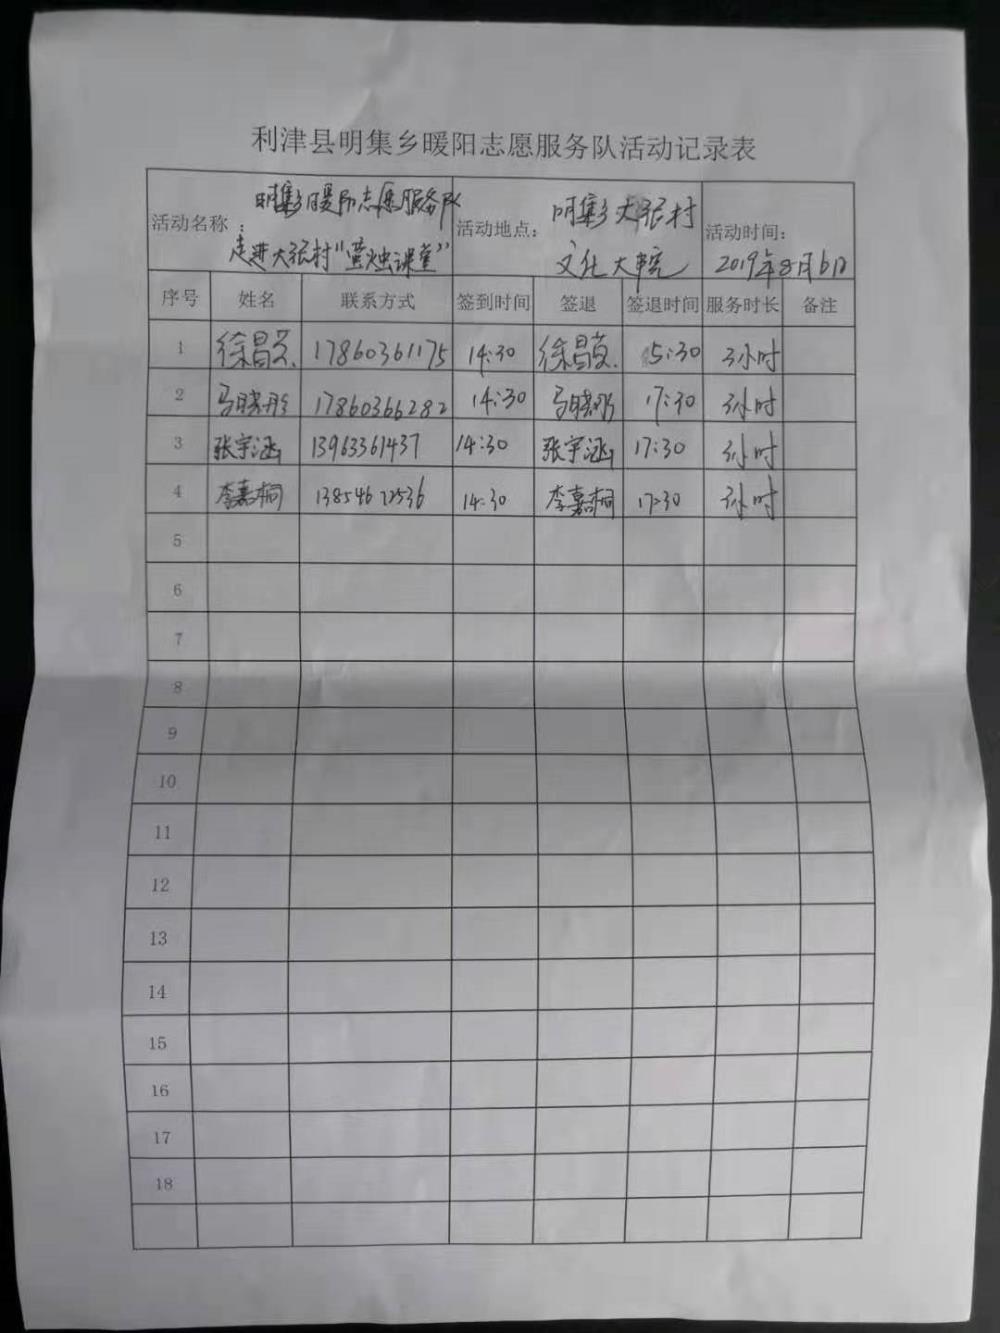 利津县明集乡暖阳志愿服务队活动记录表
活动名称： 明集乡暖阳志愿服务队
走进大张村“萤烛课堂”
活动地点： 明集乡大张村
文化大院
活动时间：
2019年8月6日
序号 姓名 联系方式 签到时间 签退 签退时间 服务时长 备注
1 徐昌英 17860361175 14:30 徐昌英 5:30 3小时
2 马晓彤 17860366282 14:30 马晓彤 17:30 3小时
3 张宇涵 13963361437 14:30 张宇涵 17:30 3小时
4 李嘉桐 13854672536 14:30 李嘉桐 17:30 3小时
5
6
7
8
9
10
11
12
13
14
15
16
17
18